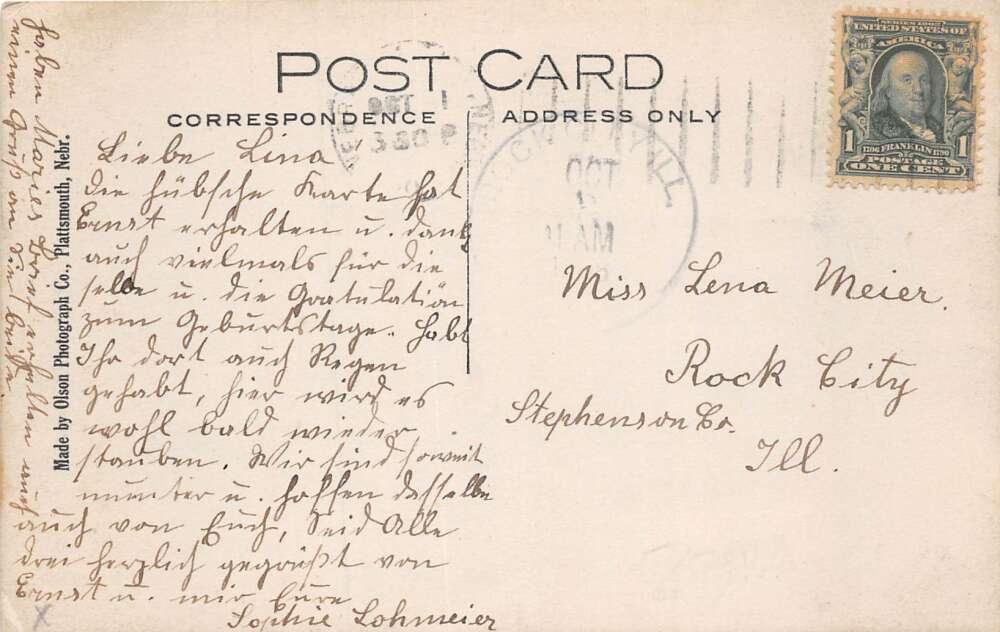 POST CARD
CORRESPONDENCE
ADDRESS ONLY
Liebe Lina
die hübsche Karte hat
Ernst erhalten u. dankt
auch vielmals für die
selbe u. die Gratulation
zum Geburtstage. Habt
Ihr dort auch Regen
gehabt, hier wird es
wohl bald wieder
stauben. Wir sind soweit
munter u. hoffen dasselbe
auch von Euch, Seid Alle
drei herzlich gegrüßt von
Ernst u. mir Eure
Sophie Lohmeier
haben Maries Brief erhalten auch
einen Gruß an Sie beide
Made by Olson Photograph Co., Plattsmouth, Nebr.
OCT 1
330 P
ROCK CITY ILL
OCT
AM
SERIES 1902
UNITED STATES OF
AMERICA
1
1706 FRANKLIN 1790
POSTAGE
ONE CENT
1
Miss Lena Meier.
Rock City
Stephenson Co.
Ill.